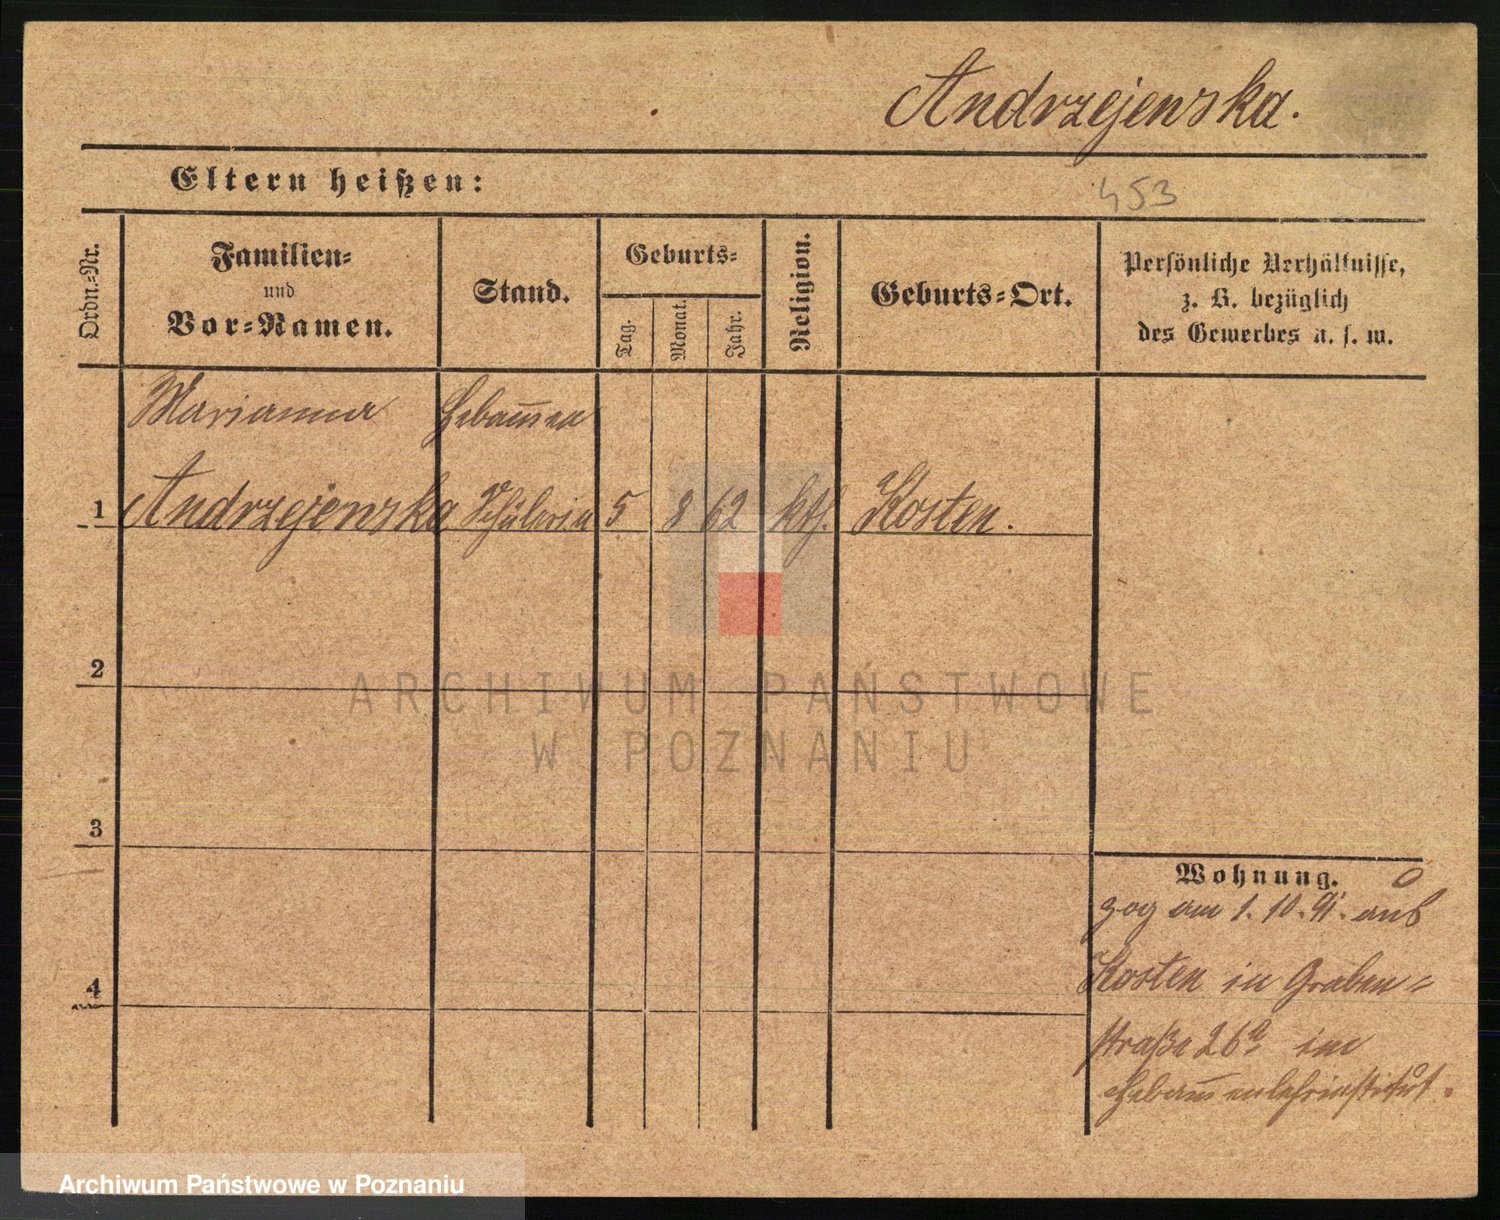 Andrzejewska.
Eltern heißen:
453
Ordn.-Nr.
Familien-
und
Vor-Namen.
Stand.
Geburts-
Tag.
Monat.
Jahr.
Religion.
Geburts-Ort.
Persönliche Verhältnisse,
z. B. bezüglich
des Gewerbes u. s. w.
Marianna Hebam̄en
1 Andrzejewska Schülerin 5 8 62 kth. Kosten.
2
3
4
Wohnung.
zog am 1. 10. 91. aus
Kosten in Graben-
straße 26a im
Hebam̄enlehrinstitut.
ARCHIWUM PAŃSTWOWE
W POZNANIU
Archiwum Państwowe w Poznaniu